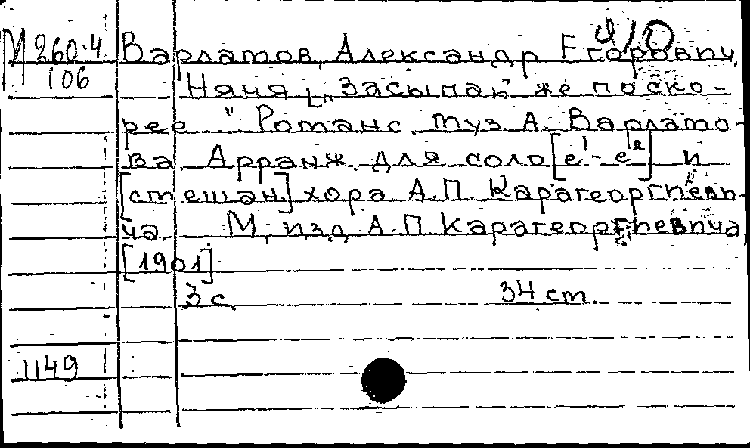 М 260.4 Варламов, Александр Егорович.
106 Няня ["Засыпай же поско-
рее..." Романс. Муз. А. Варламо-
ва. Арранж. для соло [e¹-e²] и
[смешан] хора А.П. Карагеоргиеви-
ча. М., изд. А.П. Карагеоргиевича,
[1901]
3 с. 34 см.
1149